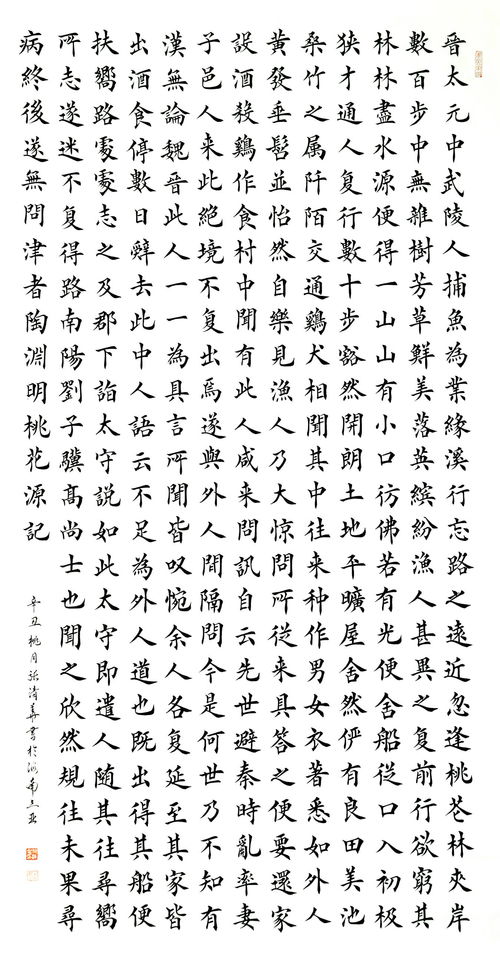 晉太元中武陵人捕魚為業緣溪行忘路之遠近忽逢桃花林夾岸
數百步中無雜樹芳草鮮美落英繽紛漁人甚異之复前行欲窮其
林林盡水源便得一山山有小口彷佛若有光便舍船從口入初极
狹才通人复行數十步豁然開朗土地平曠屋舍然儼有良田美池
桑竹之属阡陌交通鷄犬相聞其中往来种作男女衣著悉如外人
黄發垂髫並怡然自樂見漁人乃大惊問所從来具答之便要還家
設酒殺鷄作食村中聞有此人咸来問訊自云先世避秦時亂率妻
子邑人来此絕境不复出焉遂與外人間隔問今是何世乃不知有
漢無論魏晉此人一一為具言所聞皆叹惋余人各复延至其家皆
出酒食停數日辭去此中人語云不足為外人道也既出得其船便
扶嚮路處處志之及郡下詣太守説如此太守即遣人随其往尋嚮
所志遂迷不复得路南陽劉子驥高尚士也聞之欣然規往未果尋
病終後遂無問津者陶淵明桃花源記
辛丑桃月張清書於海南三亚